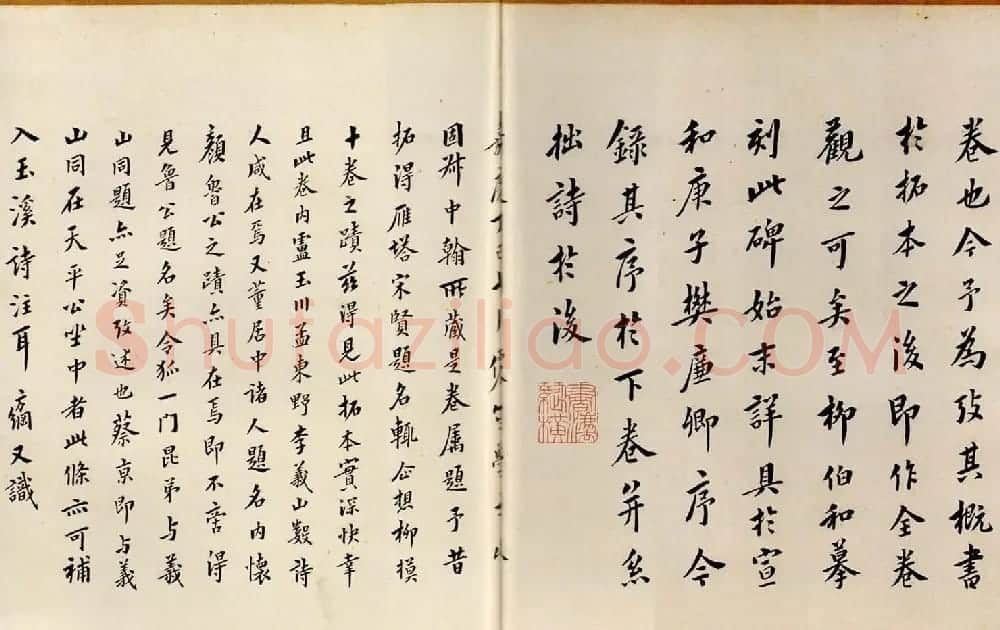 卷也今予為攷其概書
於拓本之後即作全卷
觀之可矣至柳伯和摹
刻此碑始末詳具於宣
和庚子樊廉卿序今
錄其序於下卷并系
拙詩於後
中翰所藏是卷属題予昔
拓得雁塔宋賢題名輒念想柳摸
十卷之蹟茲得見此拓本實深快幸
且此卷内盧玉川孟東野李義山數詩
人咸在焉又董居中諸人題名内懷
顏魯公之蹟亦具在焉即不啻得
見魯公題名矣令狐一门昆弟与義
山同題亦足資攷述也蔡京即与義
山同在天平公坐中者此條亦可補
入玉溪詩注耳 方綱又識
Shufaziliao.COM